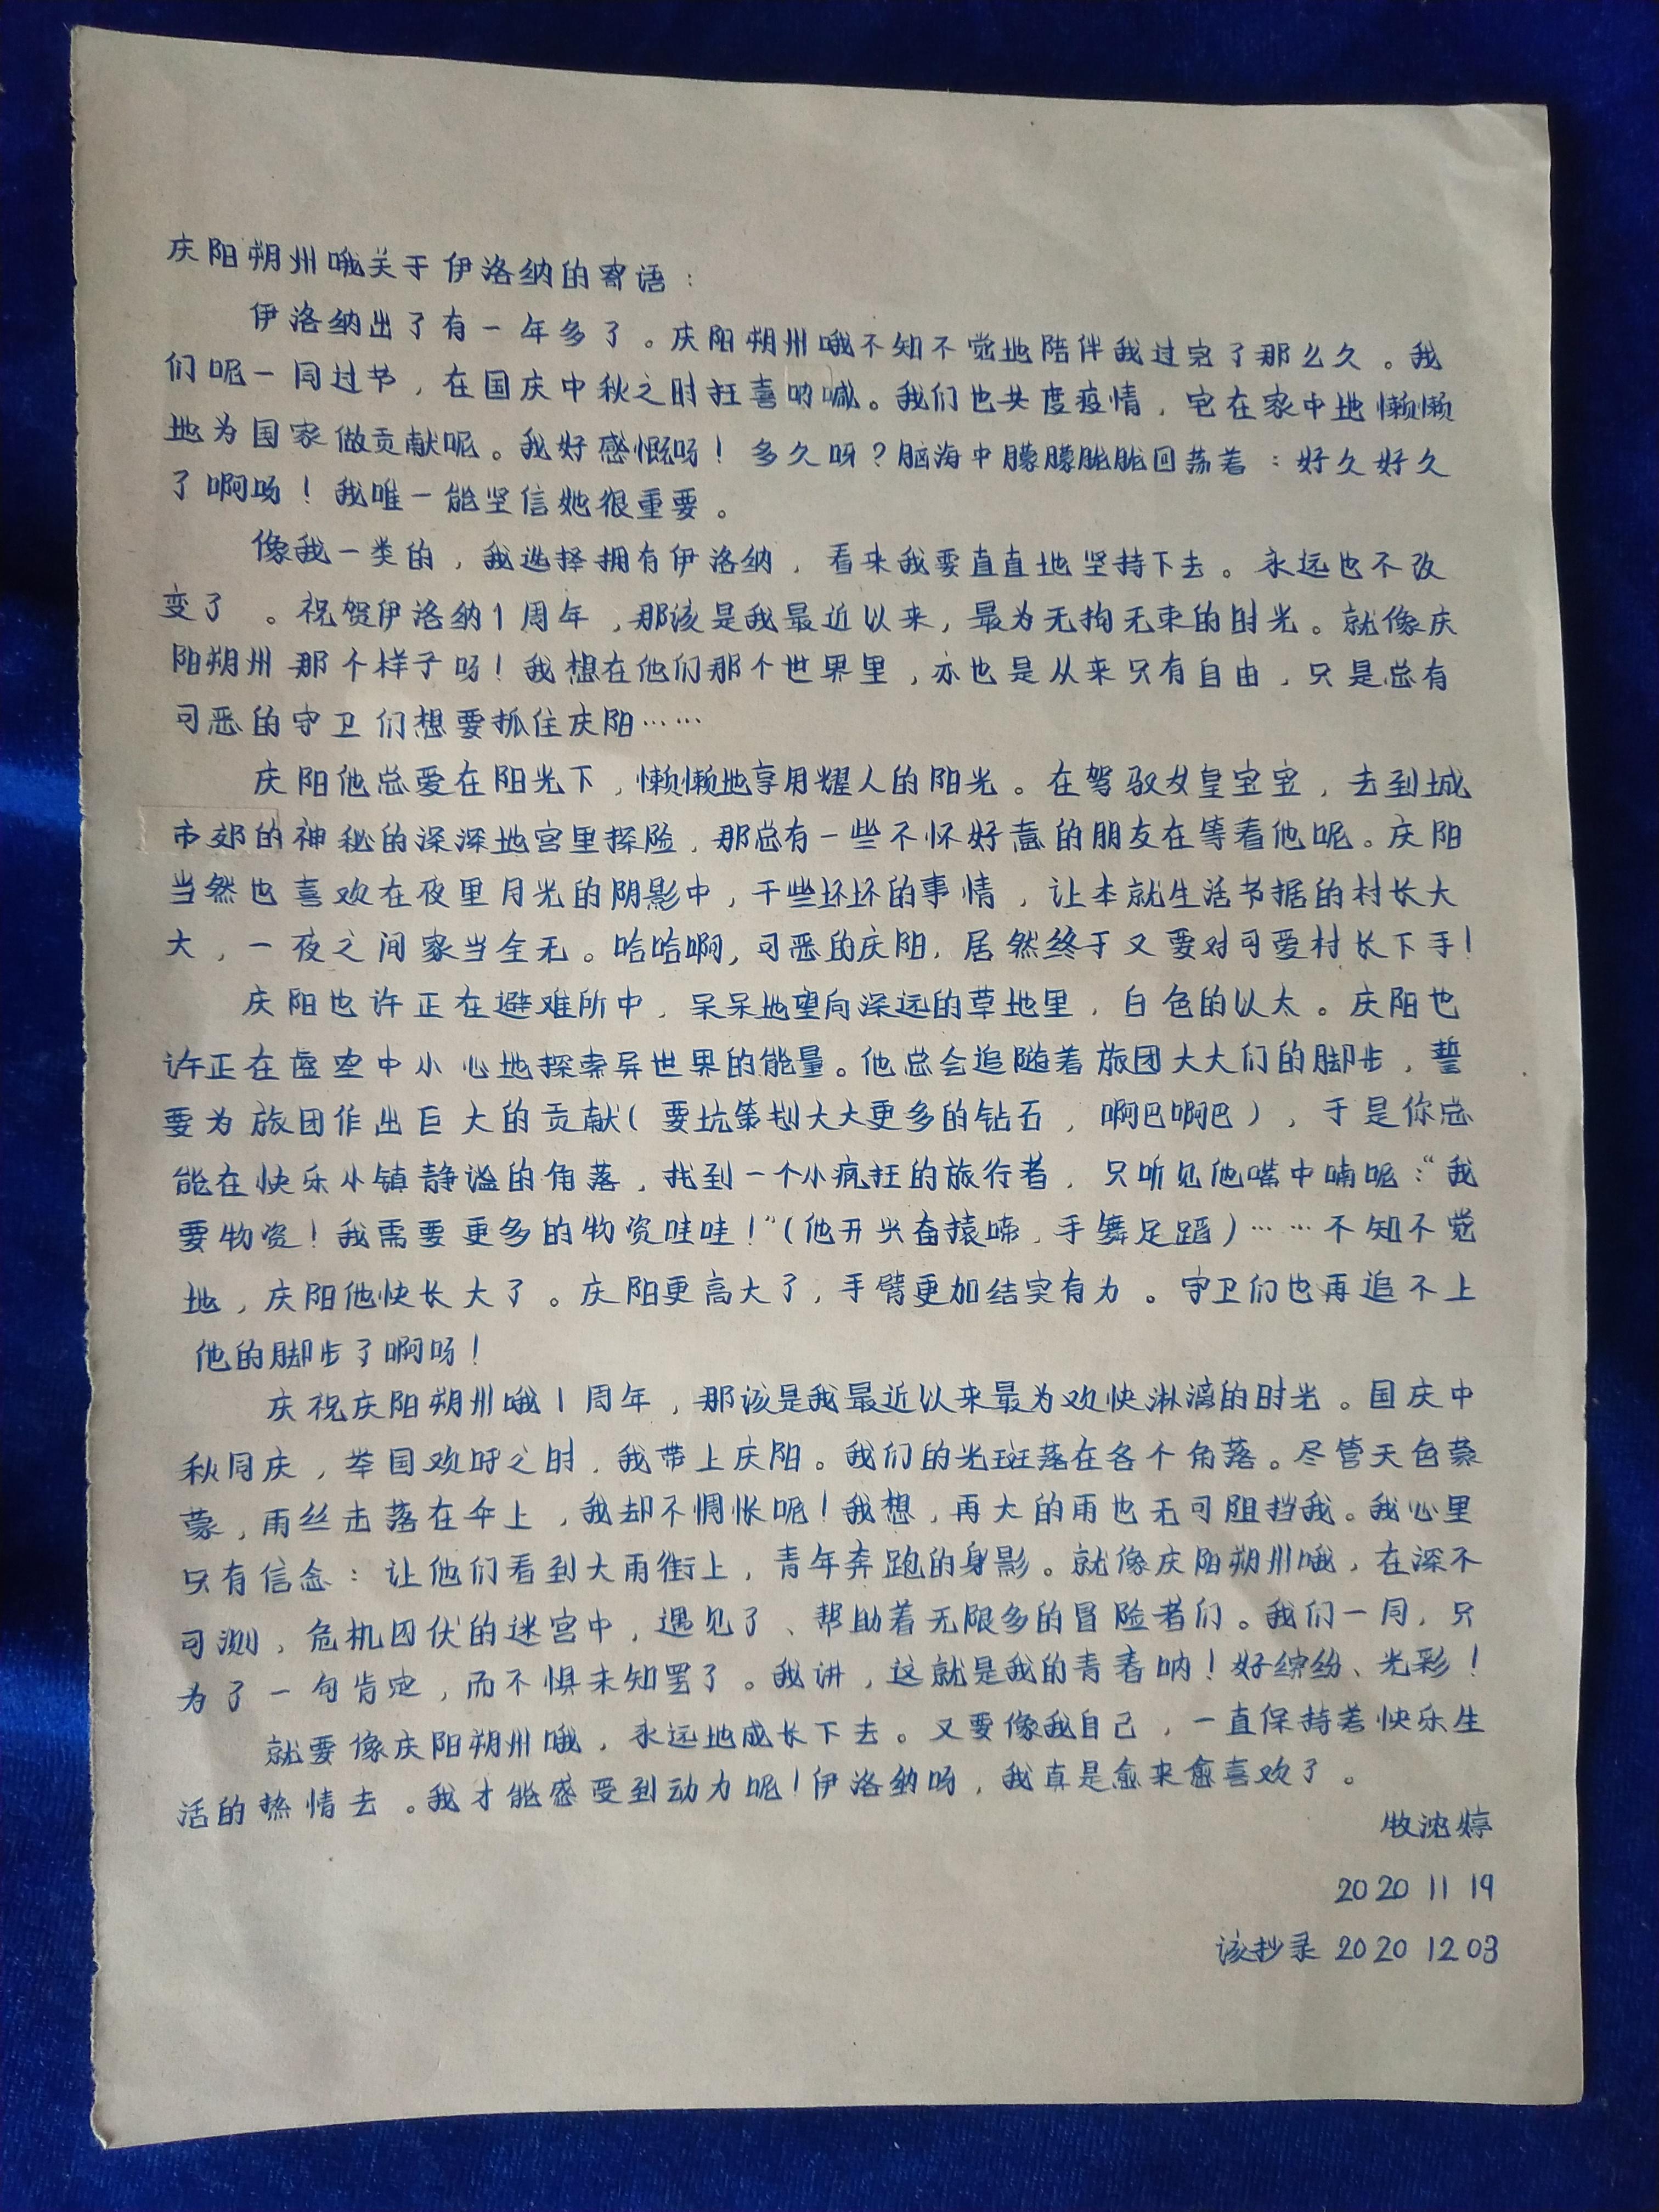 庆阳朔州哦关于伊洛纳的寄语：
伊洛纳出了有一年多了。庆阳朔州哦不知不觉地陪伴我过完了那么久。我
们呢一同过节，在国庆中秋之时狂喜呐喊。我们也共度疫情，宅在家中地懒懒
地为国家做贡献呢。我好感慨呀！多久呀？脑海中朦朦胧胧回荡着：好久好久
了啊呀！我唯一能坚信她很重要。
像我一类的，我选择拥有伊洛纳，看来我要直直地坚持下去。永远也不改
变了。祝贺伊洛纳1周年，那该是我最近以来，最为无拘无束的时光。就像庆
阳朔州那个样子呀！我想在他们那个世界里，亦也是从来只有自由，只是总有
可恶的守卫们想要抓住庆阳……
庆阳他总爱在阳光下，懒懒地享用耀人的阳光。在驾驭女皇宝宝，去到城
市郊的神秘的深深地宫里探险，那总有一些不怀好意的朋友在等着他呢。庆阳
当然也喜欢在夜里月光的阴影中，干些坏坏的事情，让本就生活节据的村长大
大，一夜之间家当全无。哈哈啊，可恶的庆阳，居然终于又要对可爱村长下手！
庆阳也许正在避难所中，呆呆地望向深远的草地里，白色的以太。庆阳也
许正在虚空中小心地探索异世界的能量。他总会追随着旅团大大们的脚步，誓
要为旅团作出巨大的贡献（要坑策划大大更多的钻石，啊巴啊巴），于是你总
能在快乐小镇静谧的角落，找到一个小疯狂的旅行者，只听见他嘴中喃呢：“我
要物资！我需要更多的物资哇哇！”（他开兴奋猿啼，手舞足蹈）……不知不觉
地，庆阳他快长大了。庆阳更高大了，手臂更加结实有力。守卫们也再追不上
他的脚步了啊呀！
庆祝庆阳朔州哦1周年，那该是我最近以来最为欢快淋漓的时光。国庆中
秋同庆，举国欢呼之时，我带上庆阳。我们的光斑落在各个角落。尽管天色蒙
蒙，雨丝击落在伞上，我却不惆怅呢！我想，再大的雨也无可阻挡我。我心里
只有信念：让他们看到大雨街上，青年奔跑的身影。就像庆阳朔州哦，在深不
可测，危机四伏的迷宫中，遇见了、帮助着无限多的冒险者们。我们一同，只
为了一句肯定，而不惧未知罢了。我讲，这就是我的青春呐！好缤纷、光彩！
就要像庆阳朔州哦，永远地成长下去。又要像我自己，一直保持着快乐生
活的热情去。我才能感受到动力呢！伊洛纳呀，我真是愈来愈喜欢了。
牧沈婷
2020 11 19
该抄录 2020 12 03